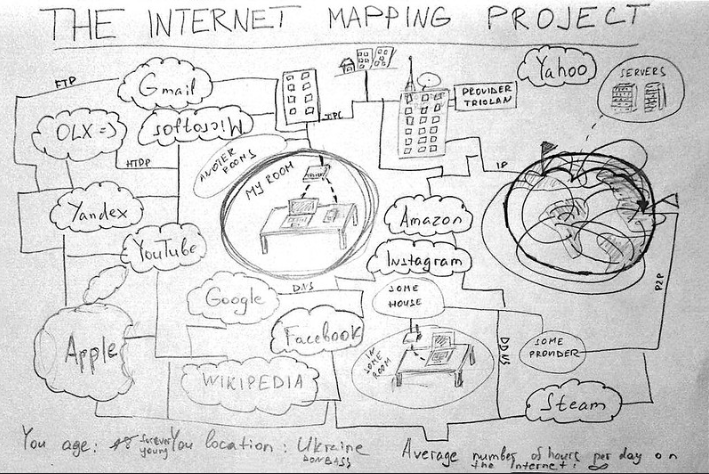 THE INTERNET MAPPING PROJECT
FTP
Gmail
Yahoo
SERVERS
PROVIDER
TRIOLAN
OLX =>
Microsoft
HTDP
ANOTER
ROOMS
MY ROOM
IP
Yandex
Amazon
YouTube
Instagram
Google
DNS
SOME
HOUSE
P2P
Apple
Facebook
IN
SOME
ROOM
SOME
PROVIDER
WIKIPEDIA
Steam
You age: forever
young
You location: Ukraine
DONBASS
Average number of hours per day on
the Internet: ∞